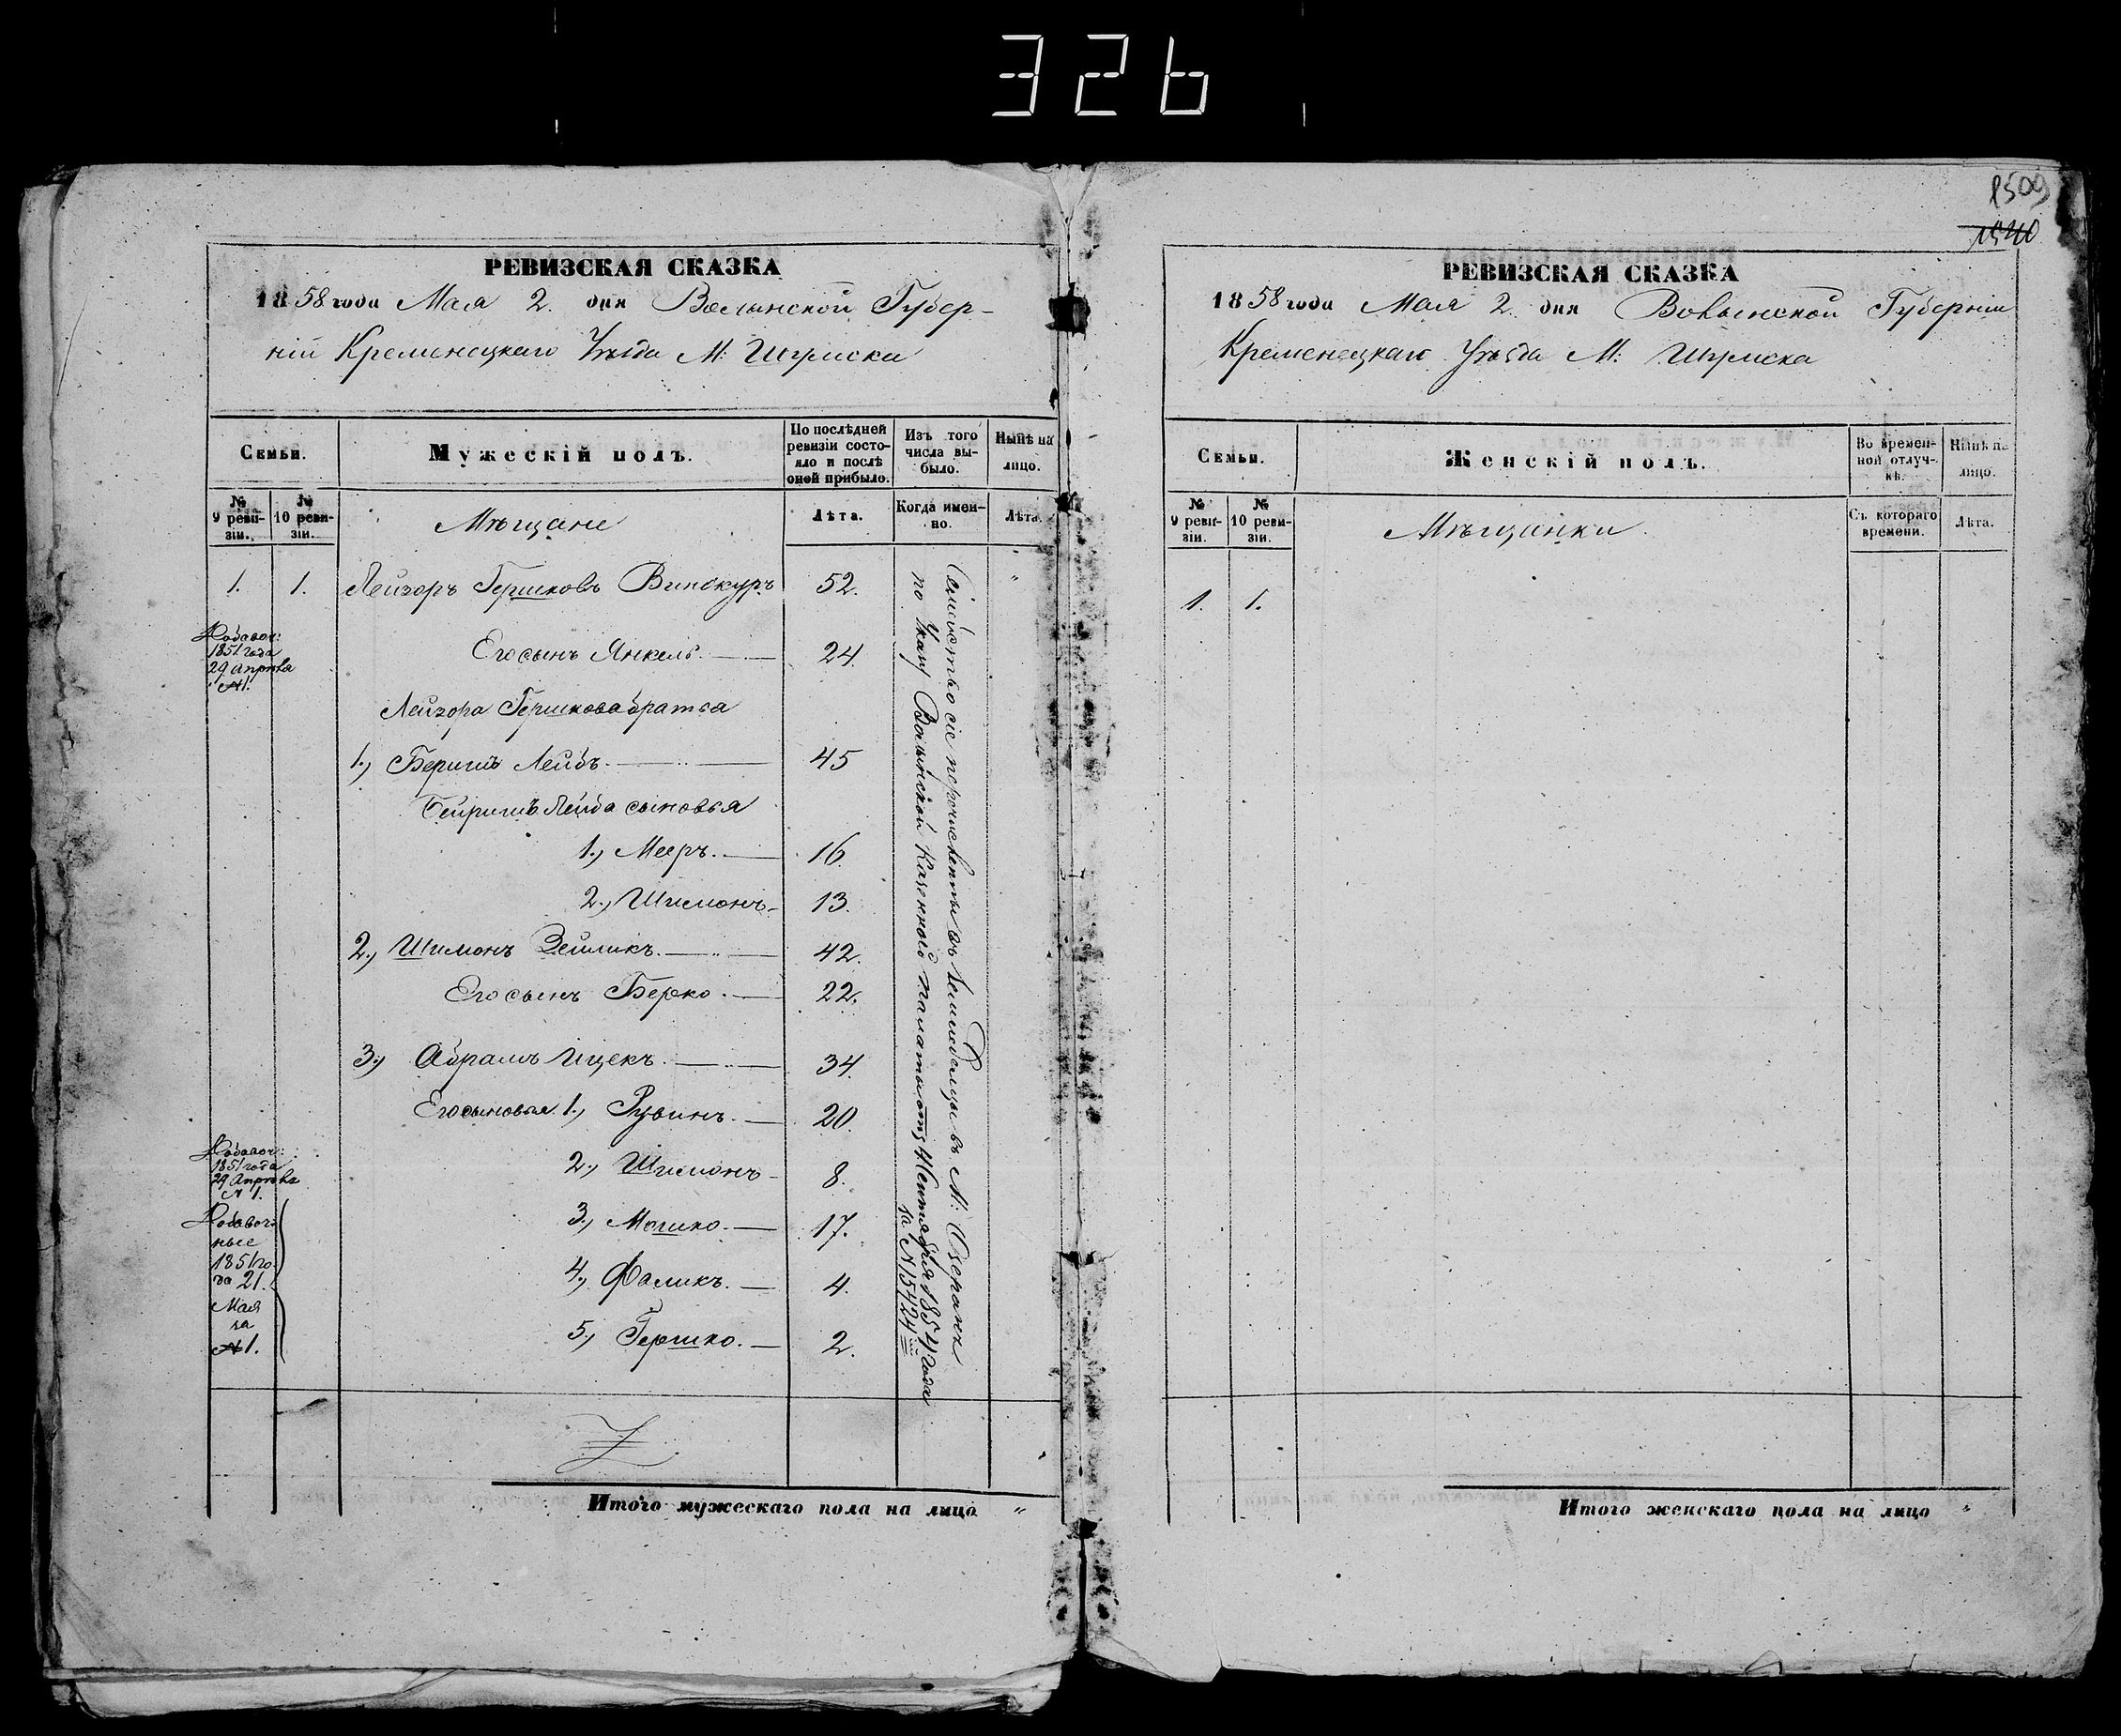 326
1509
1510
РЕВИЗСКАЯ СКАЗКА
1858 года Мая 2. дня Волынской Губер-
ніи Кременецкаго Уѣзда М: Шумска
Семьи.
Мужескій полъ.
По послѣдней ревизіи состо-яло и послѣ оной прибыло.
Изъ того числа вы-было.
Нынѣ на лицо.
№ 9 реви-зіи.
№ 10 реви-зіи.
Мѣщане
Лѣта.
Когда имен-но.
Лѣта.
1. 1. Лейзоръ Гершковъ Винокуръ 52. "
Добавоч:
1851 года
29 Апрѣля
№ 1.
Его сынъ Янкель. 24.
Лейзора Гершкова братья
1., Беришъ Лейбъ. 45
Бейришъ Лейба сыновья
1., Мееръ. 16.
2., Шимонъ 13.
2., Шимонъ Зейликъ. 42.
Его сынъ Берко. 22.
3., Абрамъ Ицекъ. 34.
Его сыновья 1., Рувинъ. 20.
Добавоч:
1851 года
29 Апрѣля
№ 1.
2., Шимонъ 8.
Добавоч-
ные
1851 го
да 21.
Мая
за
№ 1.
3., Мошко. 17.
4., Фаликъ. 4.
5., Гершко. 2.
Семейство сіе перечислены въ Земледельцы въ М:
по Указу Волынской Казенной Палаты отъ Сентября 1854 года
за № 15424
Итого мужескаго пола на лицо "
РЕВИЗСКАЯ СКАЗКА
1858 года Мая 2. дня Волынской Губерніи
Кременецкаго Уѣзда М: Шумска
Семьи.
Женскій полъ.
Во времен-ной отлуч-кѣ.
Нынѣ на лицо.
№ 9 реви-зіи.
№ 10 реви-зіи.
Мѣщанки
Съ котораго времени.
Лѣта.
1. 1.
Итого женскаго пола на лицо "